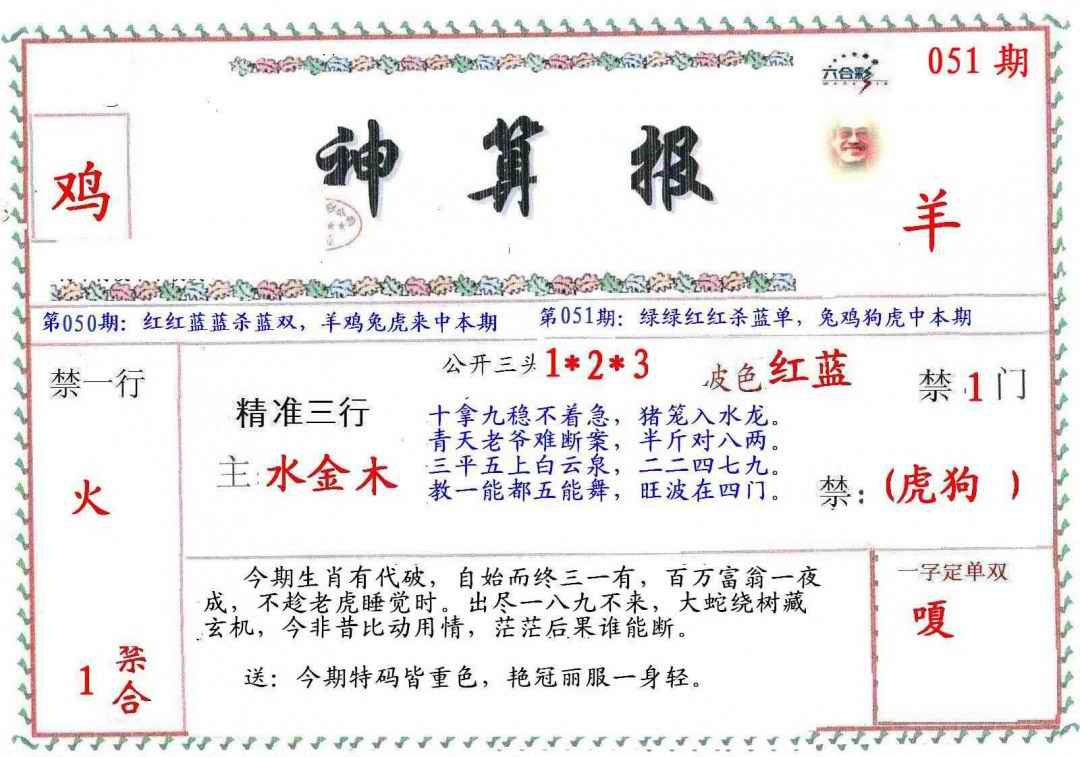 051期
六合彩
神算报
鸡
羊
第050期：红红蓝蓝杀蓝双，羊鸡兔虎来中本期
第051期：绿绿红红杀蓝单，兔鸡狗虎中本期
禁一行
火
1禁合
公开三头1*2*3
波色红蓝
禁1门
精准三行
主:水金木
十拿九稳不着急，猪笼入水龙。
青天老爷难断案，半斤对八两。
三平五上白云泉，二二四七九。
教一能都五能舞，旺波在四门。
禁：(虎狗 )
今期生肖有代破，自始而终三一有，百万富翁一夜
成，不趁老虎睡觉时。出尽一八九不来，大蛇绕树藏
玄机，今非昔比动用情，茫茫后果谁能断。
送：今期特码皆重色，艳冠丽服一身轻。
一字定单双
嘎